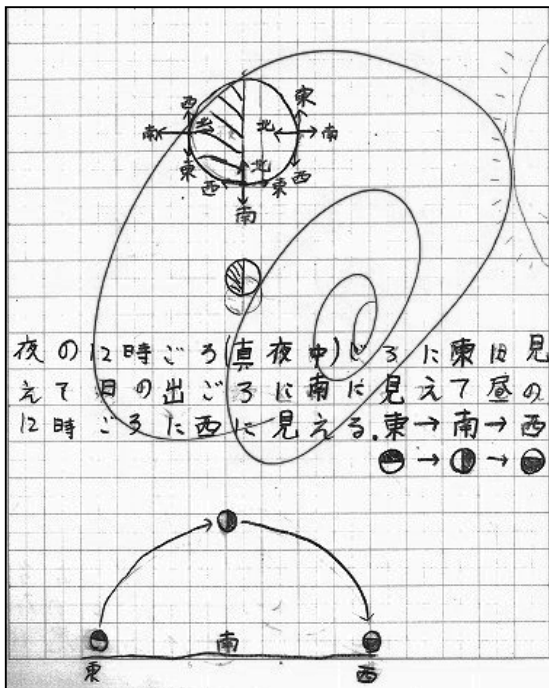 西 東
南 北 北 南
東 北 西
西 東
南
夜の12時ごろ(真夜中)ごろに東に見
えて日の出ごろに南に見えて昼の
12時ごろに西に見える.東→南→西
→ →
南
東 西